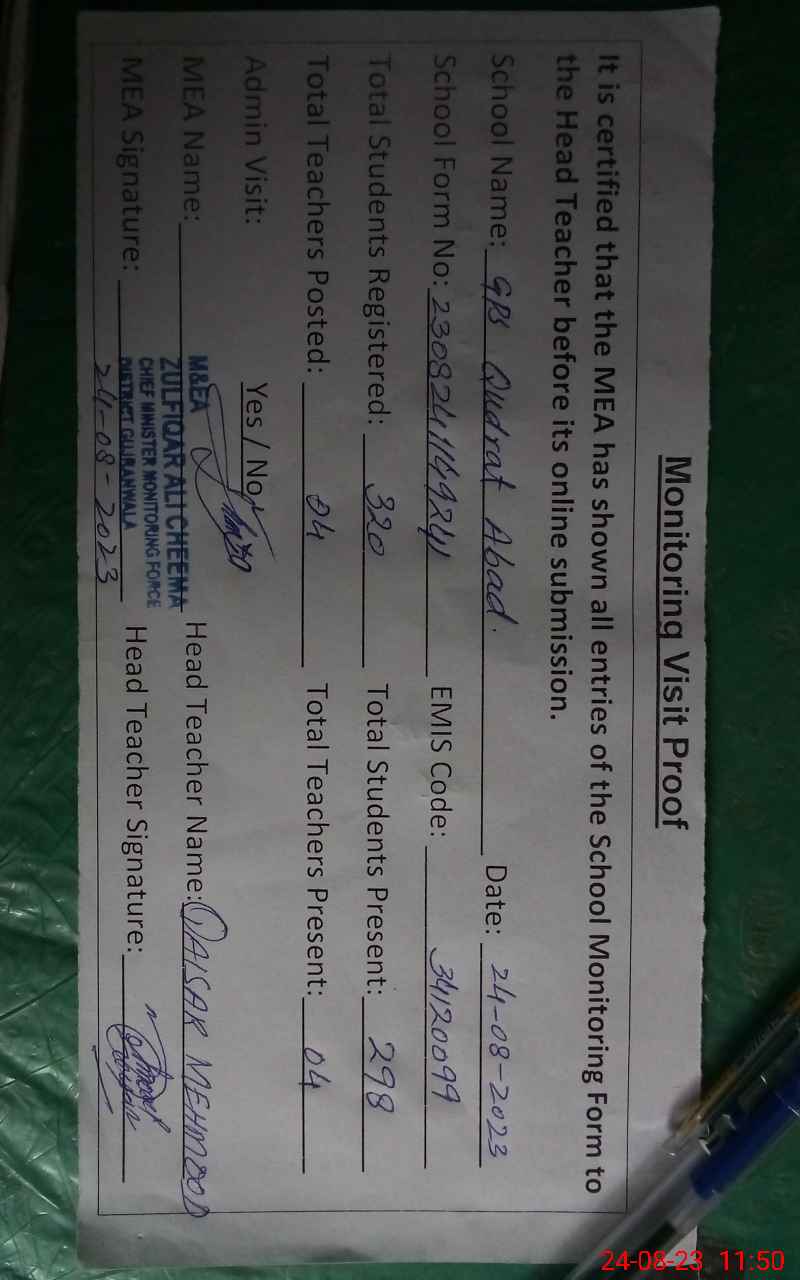 Monitoring Visit Proof
It is certified that the MEA has shown all entries of the School Monitoring Form to
the Head Teacher before its online submission.
School Name: GPS Qudrat Abad. Date: 24-08-2023
School Form No: EMIS Code: 34120099
Total Students Registered: 320 Total Students Present: 298
Total Teachers Posted: 04 Total Teachers Present: 04
Admin Visit: Yes / No
MEA Name: Head Teacher Name: QAISAR MEHMOOD
M&EA
ZULFIQAR ALI CHEEMA
CHIEF MINISTER MONITORING FORCE
DISTRICT GUJRANWALA
MEA Signature: Head Teacher Signature:
24-08-2023
24-08-23 11:50